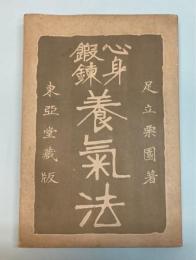 足立栗園著
心身
鍛錬
養氣法
東亞堂藏版